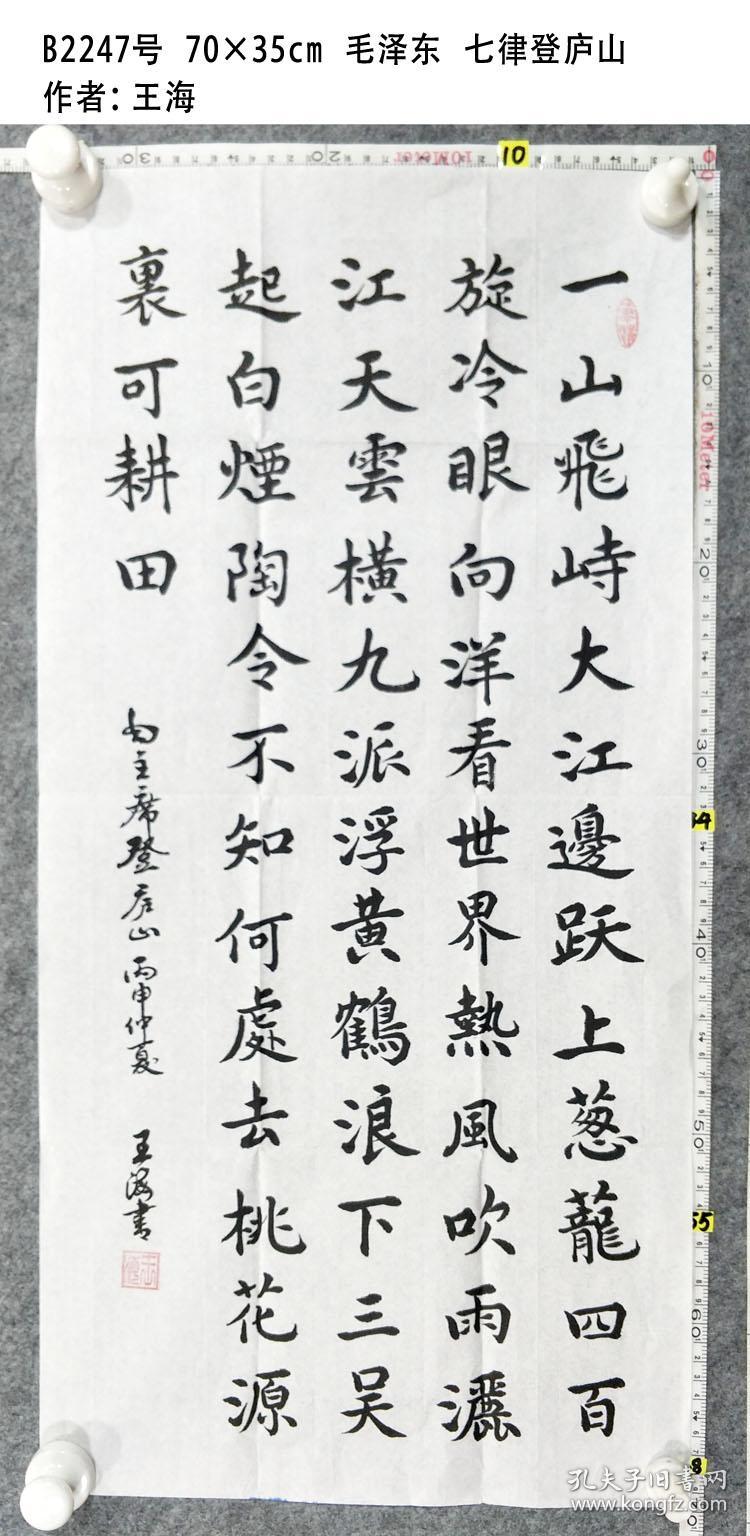 B2247号 70×35cm 毛泽东 七律登庐山
作者：王海
一山飛峙大江邊跃上葱蘢四百
旋冷眼向洋看世界熱風吹雨灑
江天雲橫九派浮黃鶴浪下三吴
起白煙陶令不知何處去桃花源
裏可耕田
毛主席登庐山 丙申仲夏 王海书
30 20 10Meter 10
10 10Meter 20 30 34 40 50 55 60
孔夫子旧书网
www.kongfz.com